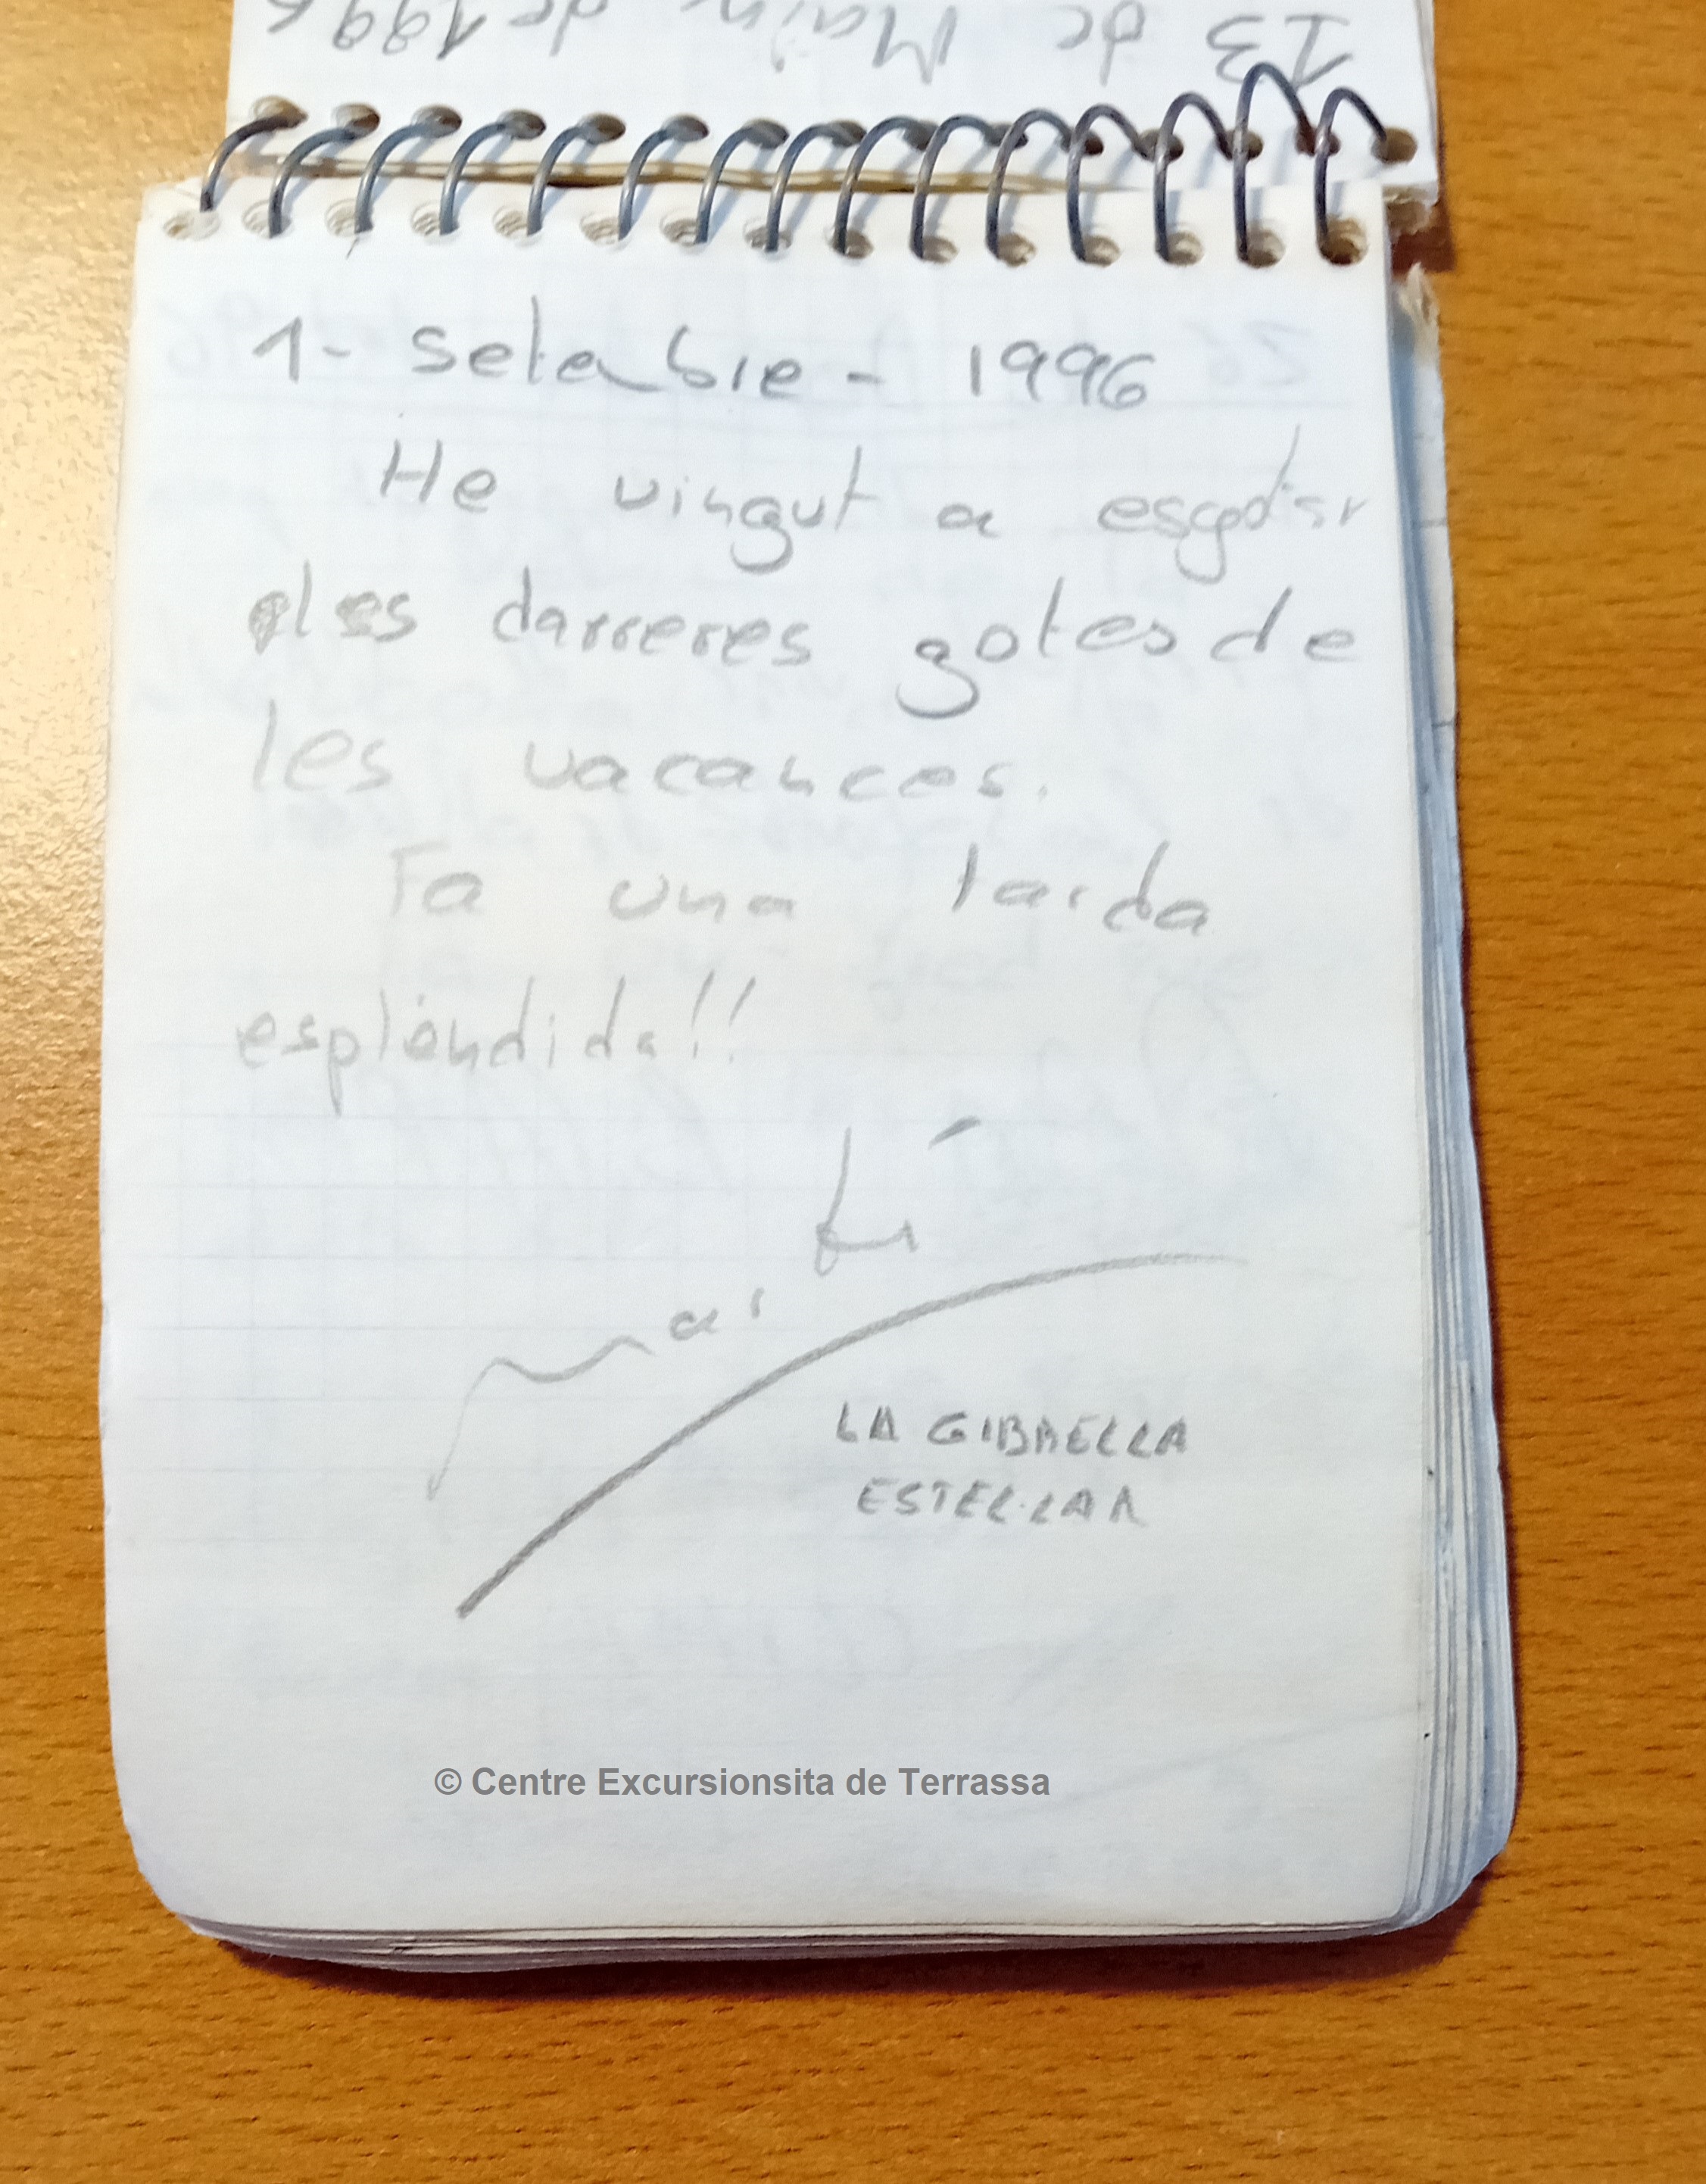 13 de Maig de 1996
1- Setembre - 1996
He vingut a esgotar
les darreres gotes de
les vacances.
Fa una tarda
esplèndida!!
Martí
LA GIBRELLA
ESTEL·LAR
© Centre Excursionsita de Terrassa